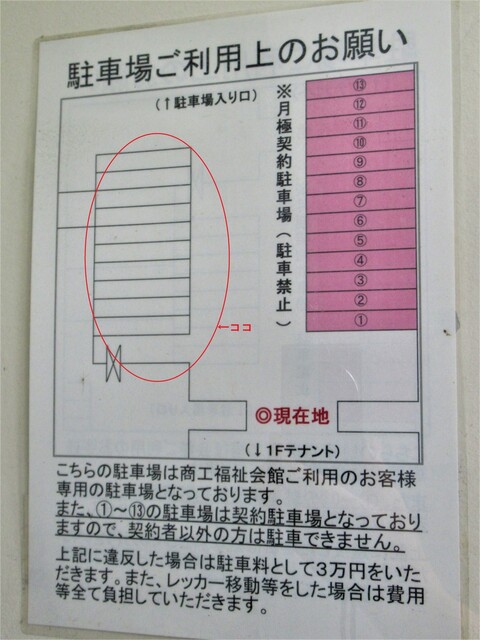 駐車場ご利用上のお願い
(↑駐車場入り口)
※月極契約駐車場(駐車禁止)
⑬
⑫
⑪
⑩
⑨
⑧
⑦
⑥
⑤
④
③
②
①
←ココ
◎現在地
(↓1Fテナント)
こちらの駐車場は商工福祉会館ご利用のお客様
専用の駐車場となっております。
また、①～⑬の駐車場は契約駐車場となっており
ますので、契約者以外の方は駐車できません。
上記に違反した場合は駐車料として3万円をいた
だきます。また、レッカー移動等をした場合は費用
等全て負担していただきます。